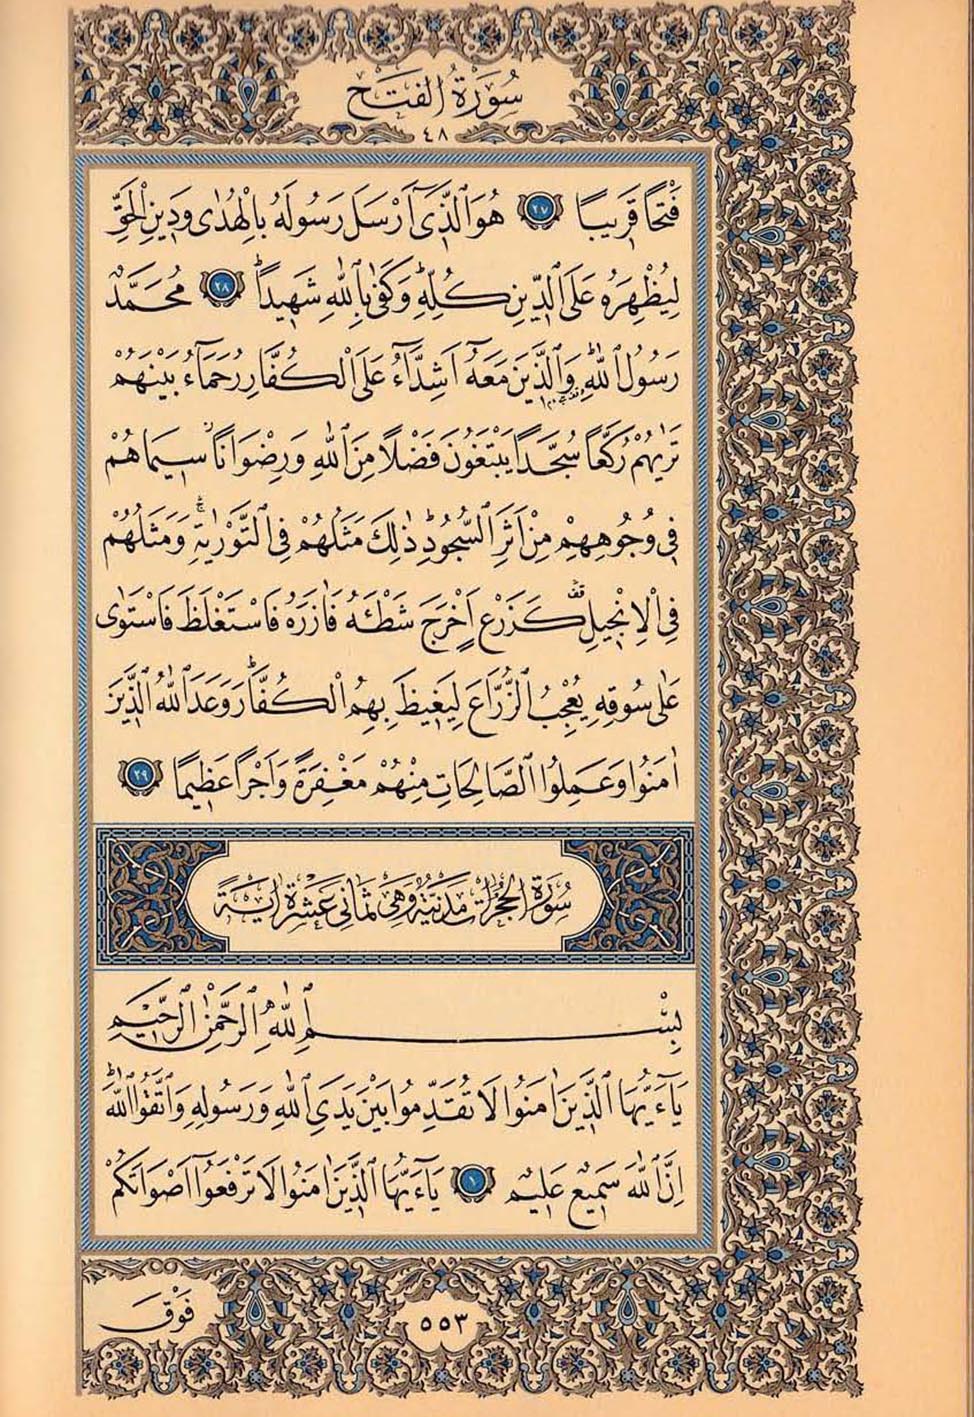 سُورَةُ الفَتْحِ
٤٨
فَتْحًا قَرِيبًا ٢٧ هُوَ الَّذِٓى اَرْسَلَ رَسُولَهُ بِالْهُدٰى وَدِينِ الْحَقِّ
لِيُظْهِرَهُ عَلَى الدِّينِ كُلِّهِ وَكَفٰى بِاللّٰهِ شَهِيدًاۜ ٢٨ مُحَمَّدٌ
رَسُولُ اللّٰهِۜ وَالَّذِينَ مَعَهُٓ اَشِدَّٓاءُ عَلَى الْكُفَّارِ رُحَمَٓاءُ بَيْنَهُمْ
تَرٰيهُمْ رُكَّعًا سُجَّدًا يَبْتَغُونَ فَضْلًا مِنَ اللّٰهِ وَرِضْوَانًاۘ سِيمَاهُمْ
فِى وُجُوهِهِمْ مِنْ اَثَرِ السُّجُودِۜ ذٰلِكَ مَثَلُهُمْ فِى التَّوْرٰيةِۚ وَمَثَلُهُمْ
فِى الْاِنْجِيلِ كَزَرْعٍ اَخْرَجَ شَطْـَٔهُ فَاٰزَرَهُ فَاسْتَغْلَظَ فَاسْتَوٰى
عَلٰى سُوقِهِ يُعْجِبُ الزُّرَّاعَ لِيَغِيظَ بِهِمُ الْكُفَّارَۜ وَعَدَ اللّٰهُ الَّذِينَ
اٰمَنُوا وَعَمِلُوا الصَّالِحَاتِ مِنْهُمْ مَغْفِرَةً وَاَجْرًا عَظِيمًا ٢٩
سُورَةُ الحُجُرَاتِ مَدَنِيَّةٌ وَهِىَ ثَمَانِى عَشْرَةَ اٰيَةً
بِسْمِ اللّٰهِ الرَّحْمٰنِ الرَّحِيمِ
يَٓا اَيُّهَا الَّذِينَ اٰمَنُوا لَا تُقَدِّمُوا بَيْنَ يَدَىِ اللّٰهِ وَرَسُولِهِ وَاتَّقُوا اللّٰهَۜ
اِنَّ اللّٰهَ سَمِيعٌ عَلِيمٌ ١ يَٓا اَيُّهَا الَّذِينَ اٰمَنُوا لَا تَرْفَعُٓوا اَصْوَاتَكُمْ
فَوْقَ
٥٥٣